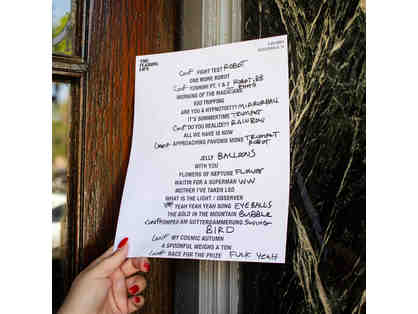 THE
FLAMING
LIPS
CONF FIGHT TEST ROBOT
ONE MORE ROBOT
CONF YOSHIMI PT. 1 & 2 ROBOT, BB
MORNING OF THE MAGICIANS
EGO TRIPPING
ARE YOU A HYPNOTIST?? MIRRORBALL
IT'S SUMMERTIME TRUMPET
CONF DO YOU REALIZE?? RAINBOW
ALL WE HAVE IS NOW
APPROACHING PAVONIS MONS TRUMPET
ROBOT
JELLY BALLOONS
WITH YOU
FLOWERS OF NEPTUNE FLOWER
WAITIN FOR A SUPERMAN WW
MOTHER I'VE TAKEN LSD
WHAT IS THE LIGHT / OBSERVER
YEAH YEAH YEAH SONG EYE BALLS
THE GOLD IN THE MOUNTAIN BUBBLE
POMPEII AM GOTTERDAMMERUNG SWING
BIRD
CONF MY COSMIC AUTUMN
A SPOONFUL WEIGHS A TON
CONF RACE FOR THE PRIZE FUCK YEAH